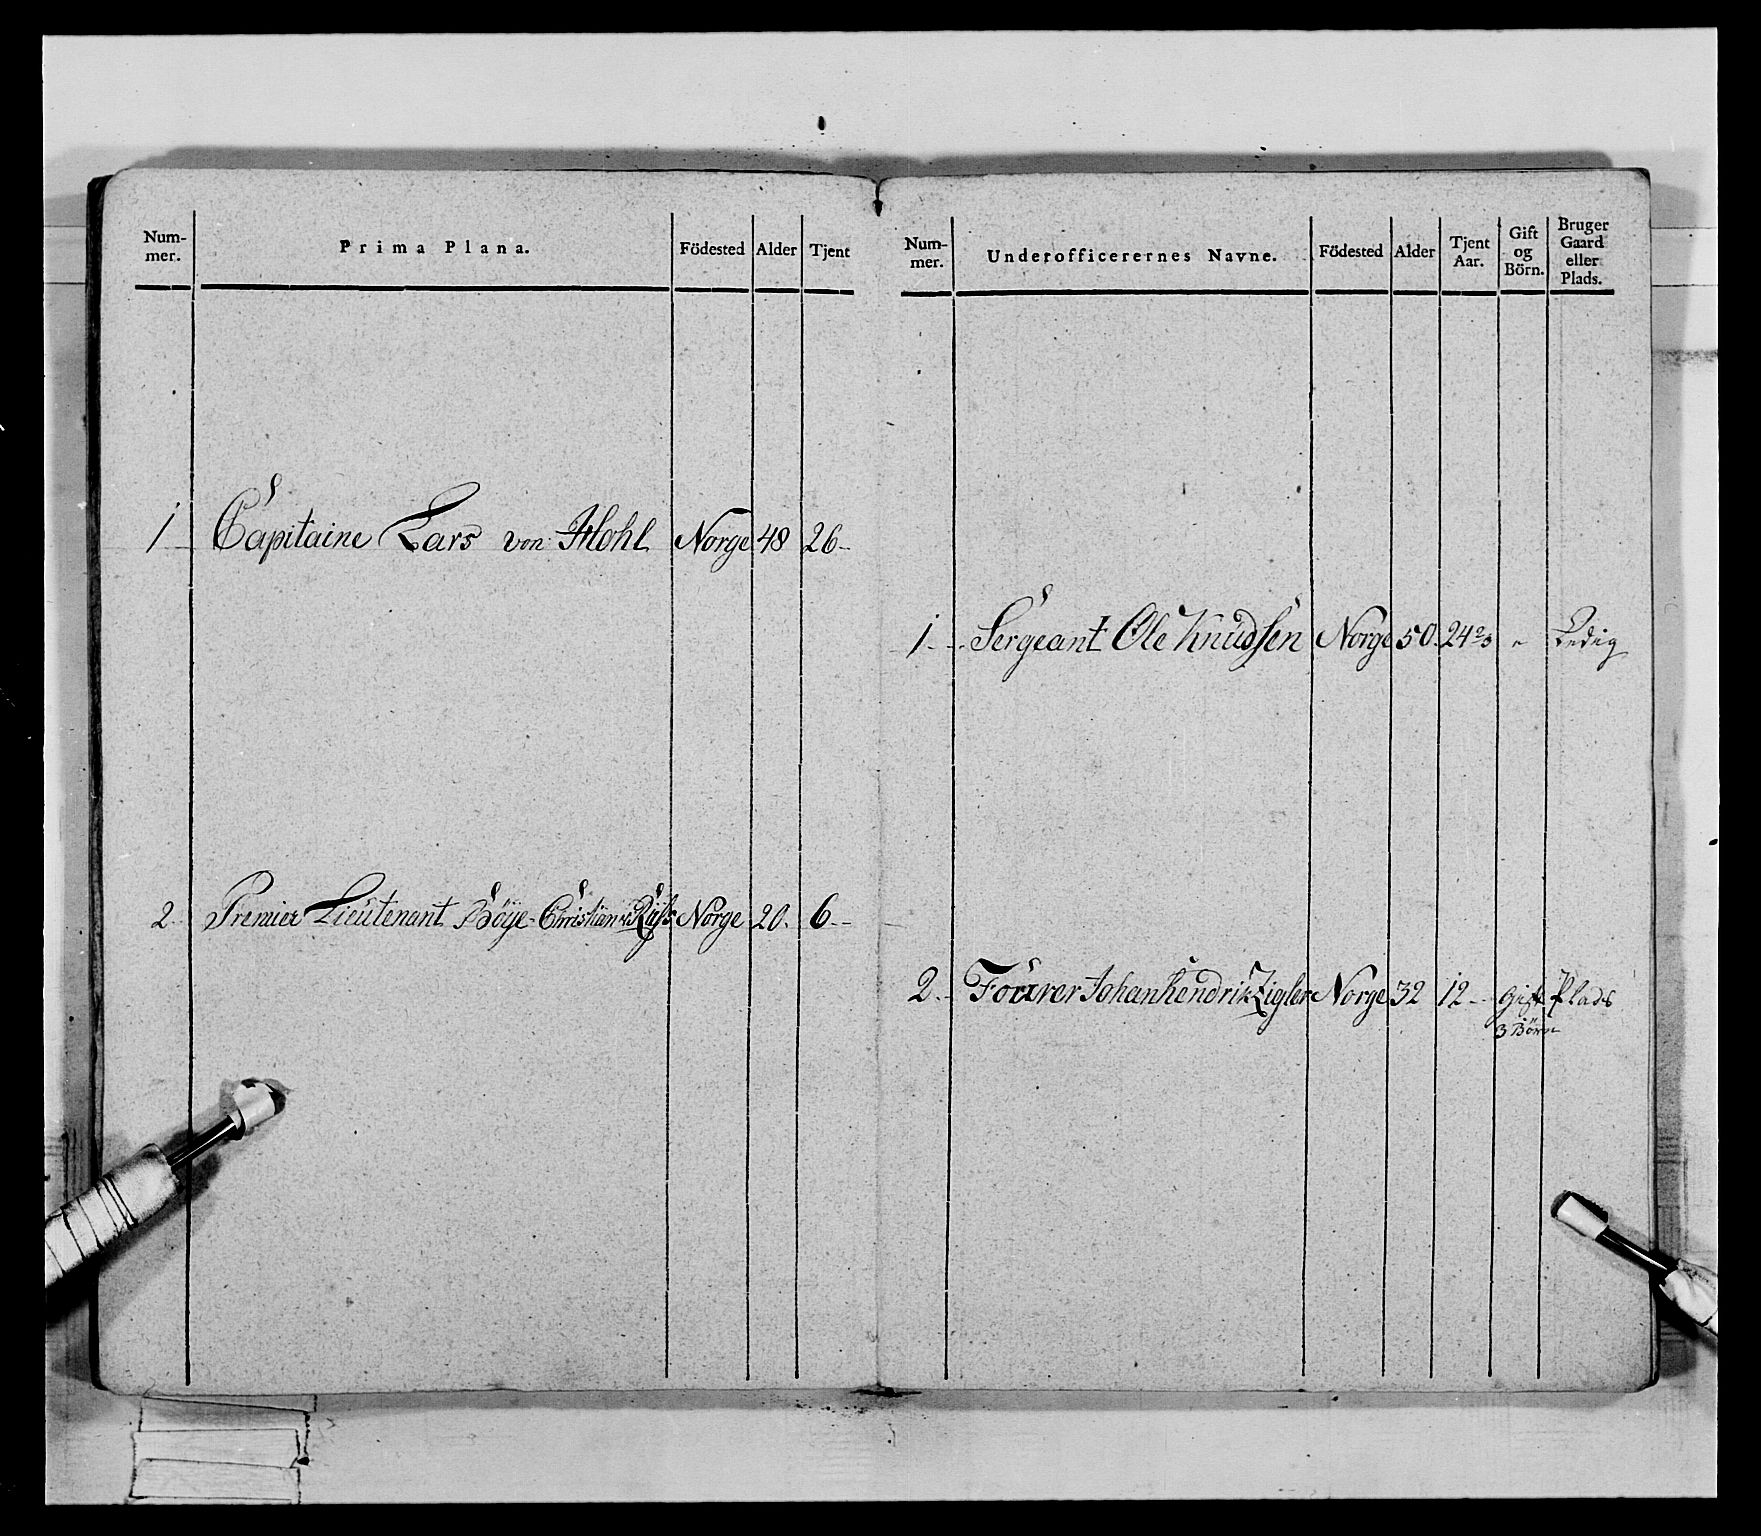 Num-
mer.
Prima Plana.
Födested
Alder
Tjent
1 Capitaine Lars von Hohl Norge 48 26
2 Premier Lieutenant Böye Christian Norge 20. 6
Num-
mer.
Underofficerernes Navne.
Födested
Alder
Tjent
Aar.
Gift
og
Börn.
Bruger
Gaard
eller
Plads.
1. Sergeant Ole Knudsen Norge 50. 24 2/3 Ledig
2. Fourer Johan Hendrik Zigler Norge 32 12 Gift Plads
3 Börn